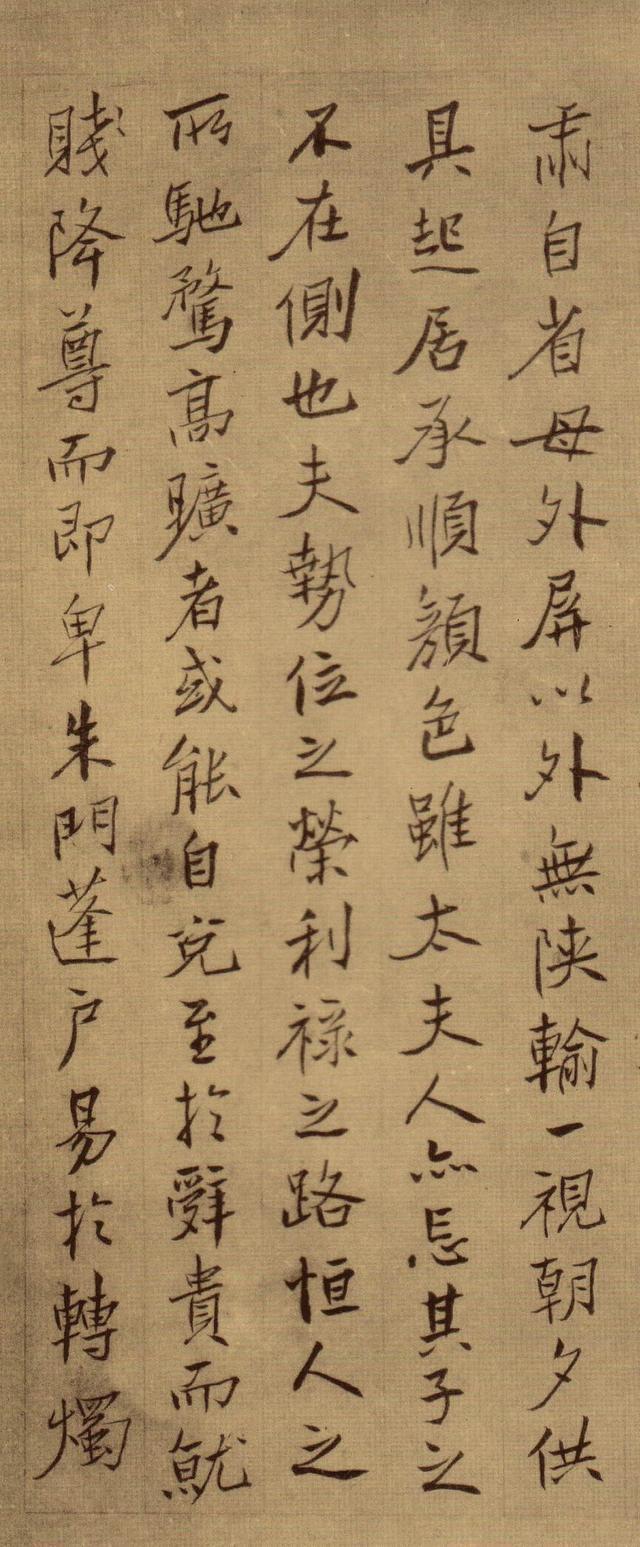 肅自省母外屏以外無陝輸一視朝夕供
具起居承順顏色雖太夫人亦忘其子之
不在側也夫勢位之榮利祿之路恒人之
所馳騖高曠者或能自免至於辭貴而就
賤降尊而即卑朱門蓬户易於轉燭